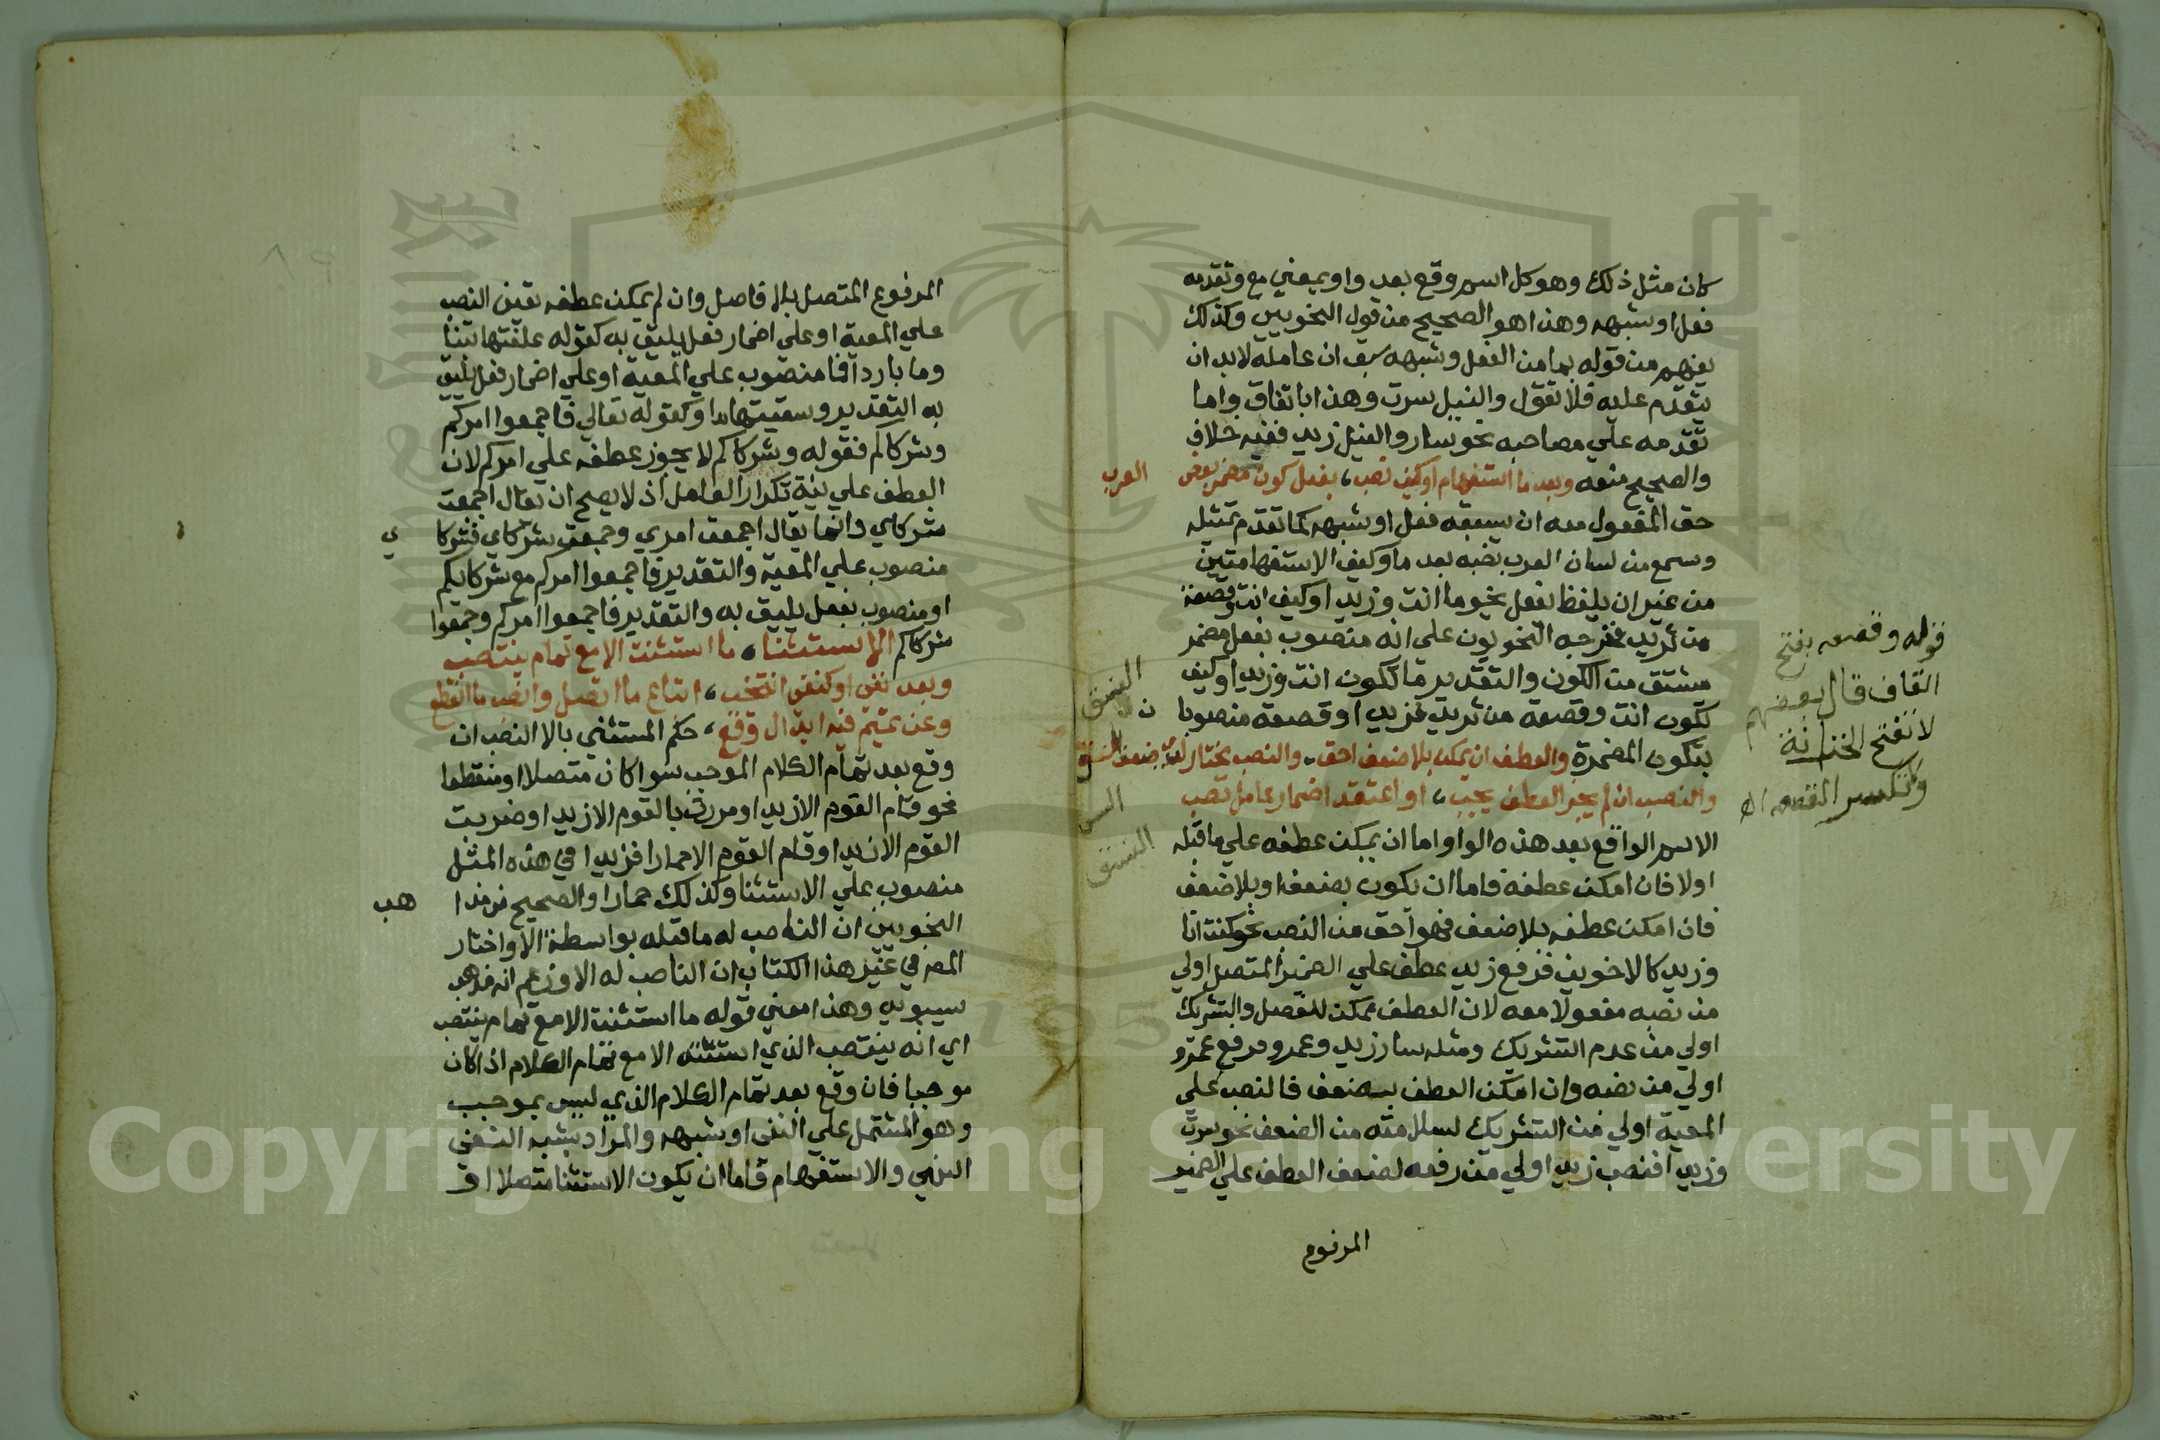 كان مثل ذلك وهو كل اسم وقع بعد واو بمعني مع وتقدمه
فعل او شبهه وهذا هو الصحيح من قول النحويين وكذلك
يفهم من قوله بما من الفعل وشبهه سبق ان عامله لابد ان
يتقدم عليه فلا تقول والنيل سرت وهذا باتفاق واما
تقدمه علي مصاحبه نحو سار والنيل زيد ففيه خلاف
والصحيح منعه وبعد ما استفهام او كيف نصب، بفعل كون مضمر بعض العرب
حق المفعول معه ان يسبقه فعل او شبهه كما تقدم تمثيله
وسمع من لسان العرب نصبه بعد ما وكيف الاستفهاميتين
من غير ان يلفظ بفعل نحو ما انت وزيدا وكيف انت وقصعة
من ثريد فخرجه النحويون علي انه منصوب بفعل مضمر
مشتق من الكون والتقدير ما تكون انت وزيدا وكيف
تكون انت وقصعة من ثريد فزيدا وقصعة منصوبان
بتكون المضمرة والعطف ان يمكن بلا ضعف احق، والنصب مختار لدي ضعف النسق
والنصب ان لم يجز العطف يجب، او اعتقد اضمار عامل تصب
الاسم الواقع بعد هذه الواو اما ان يمكن عطفه علي ماقبله
اولا فان امكن عطفه فاما ان يكون بضعف او بلا ضعف
فان امكن عطفه بلا ضعف فهو احق من النصب نحو كنت انا
وزيد كالاخوين فرفع زيد عطف علي الضمير المتصل اولي
من نصبه مفعولا معه لان العطف ممكن للفصل والتشريك
اولي من عدم التشريك ومثله سار زيد وعمرو فرفع عمرو
اولي من نصبه وان امكن العطف بضعف فالنصب علي
المعية اولي من التشريك لسلامته من الضعف نحو سرت
وزيدا فنصب زيد اولي من رفعه لضعف العطف علي الضمير
المرفوع
قوله وقصعه بفتح
القاف قال بعضهم
لا تفتح الخزانة
ولا تكسر القصعه اه
النسق
النسق
المرفوع المتصل بلا فاصل وان لم يمكن عطفه تعين النصب
علي المعية او علي اضمار فعل يليق به كقوله علفتها تبنا
وما باردا فما منصوب علي المعية او علي اضمار فعل يليق
به التقدير وسقيتها ما وكقوله تعالي فاجمعوا امركم
وشركاكم فقوله وشركاكم لا يجوز عطفه علي امركم لان
العطف علي نية تكرار العامل اذ لا يصح ان يقال اجمعت
شركاي وانما يقال اجمعت امري وجمعت شركاي فشركاي
منصوب علي المعية والتقدير فاجمعوا امركم مع شركايكم
او منصوب بفعل يليق به والتقدير فاجمعوا امركم وجمعوا
شركاكم الاستثنا، ما استثنت الا مع تمام ينتصب
وبعد نفي او كنفي انتخب، اتباع ما اتصل وانصب ما انقطع
وعن تميم فيه ابدال وقع، حكم المستثني بالا النصب ان
وقع بعد تمام الكلام الموجب سوا كان متصلا او منقطعا
نحو قام القوم الا زيدا ومررت بالقوم الا زيدا وضربت
القوم الا زيدا وقام القوم الا حمارا فزيدا في هذه المثل
منصوب علي الاستثنا وكذلك حمارا والصحيح من مذاهب
النحويين ان الناصب له ما قبله بواسطة الا واختار
المص في غير هذا الكتاب ان الناصب له الا وزعم انه مذهب
سيبويه وهذا معني قوله ما استثنت الا مع تمام ينتصب
اي انه ينتصب الذي استثنته الا مع تمام الكلام اذا كان
موجبا فان وقع بعد تمام الكلام الذي ليس بموجب
وهو المشتمل علي النفي او شبهه والمراد بشبه النفي
النهي والاستفهام فاما ان يكون الاستثنا متصلا او
Copyright © King Saud University